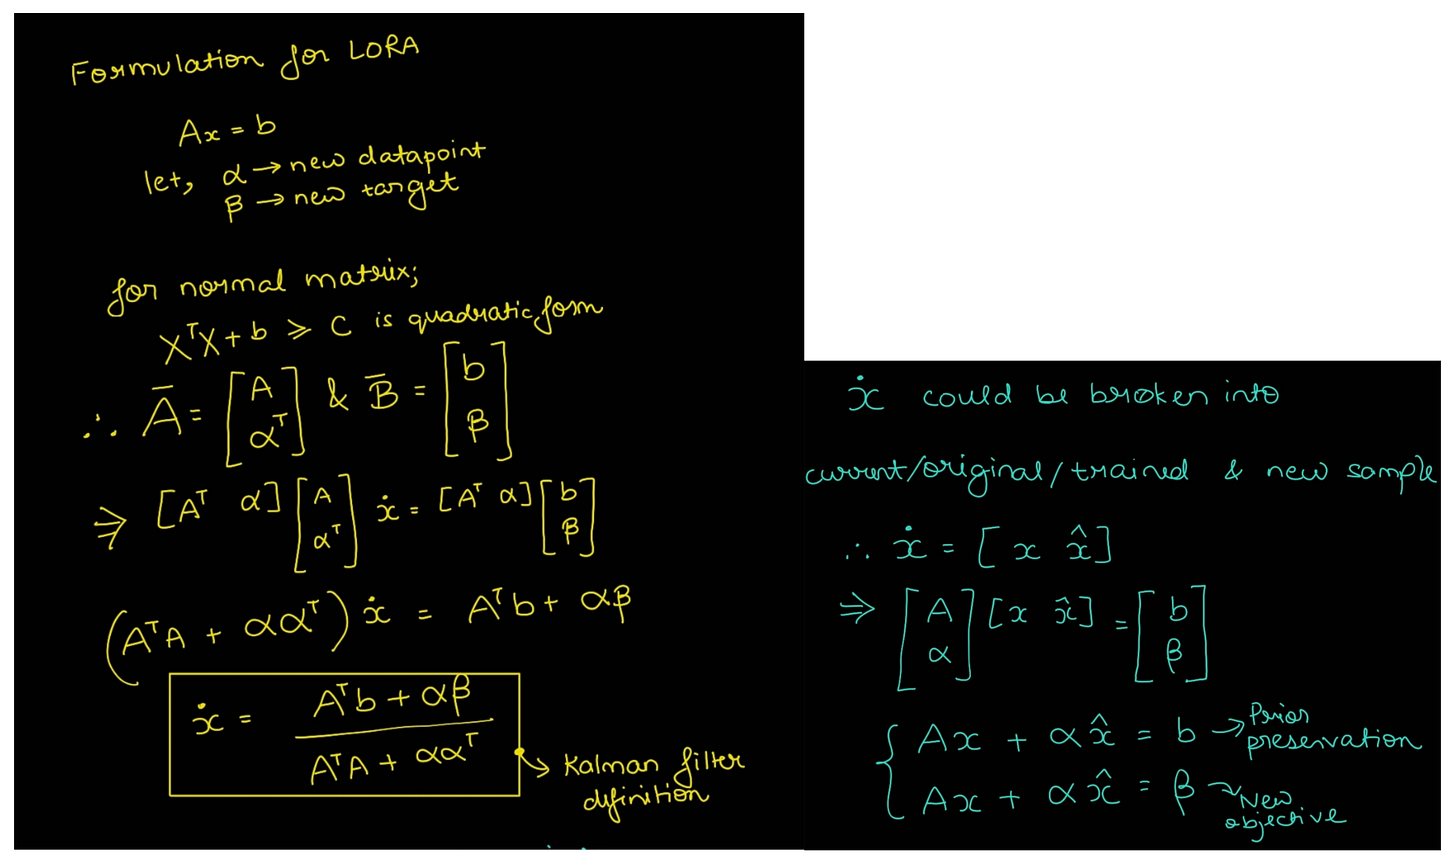 Formulation for LORA
Ax = b
let, α → new datapoint
β → new target
for normal matrix;
XᵀX + b ⩾ C is quadratic form
∴ Ā = [A αᵀ] & B̄ = [b β]
⇒ [Aᵀ α] [A αᵀ] ẋ = [Aᵀ α] [b β]
(AᵀA + ααᵀ) ẋ = Aᵀb + αβ
ẋ = Aᵀb + αβ / AᵀA + ααᵀ
→ Kalman filter
definition
ẋ could be broken into
current/original/trained & new sample
∴ ẋ = [x x̂]
⇒ [A α] [x x̂] = [b β]
{ Ax + αx̂ = b → Prior preservation
Ax + αx̂ = β → New objective